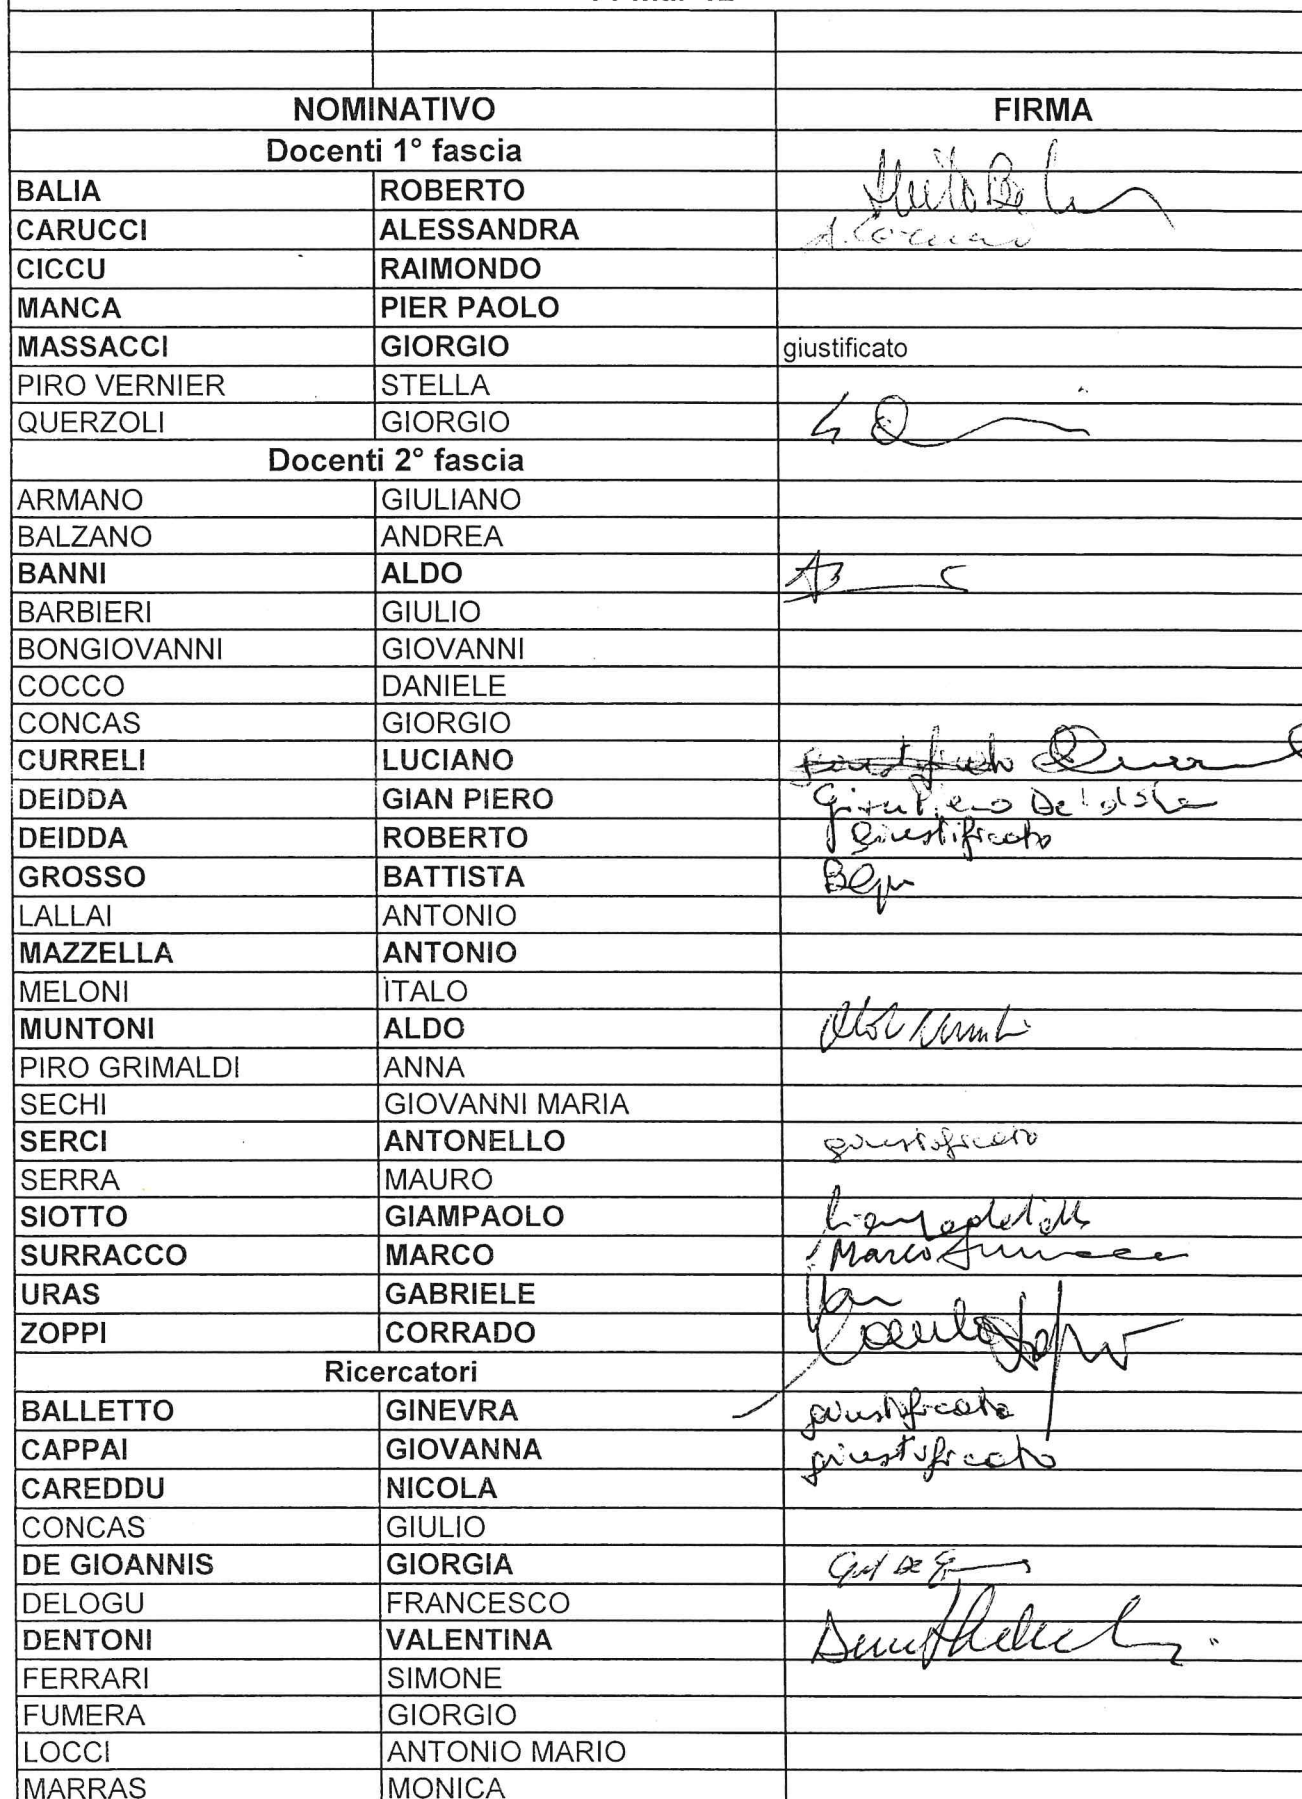 NOMINATIVO FIRMA
Docenti 1° fascia
BALIA ROBERTO
CARUCCI ALESSANDRA A. Carucci
CICCU RAIMONDO
MANCA PIER PAOLO
MASSACCI GIORGIO giustificato
PIRO VERNIER STELLA
QUERZOLI GIORGIO
Docenti 2° fascia
ARMANO GIULIANO
BALZANO ANDREA
BANNI ALDO
BARBIERI GIULIO
BONGIOVANNI GIOVANNI
COCCO DANIELE
CONCAS GIORGIO
CURRELI LUCIANO giustificato
DEIDDA GIAN PIERO Gian Piero Deidda
DEIDDA ROBERTO giustificato
GROSSO BATTISTA
LALLAI ANTONIO
MAZZELLA ANTONIO
MELONI ITALO
MUNTONI ALDO Aldo Muntoni
PIRO GRIMALDI ANNA
SECHI GIOVANNI MARIA
SERCI ANTONELLO giustificato
SERRA MAURO
SIOTTO GIAMPAOLO
SURRACCO MARCO Marco Surracco
URAS GABRIELE
ZOPPI CORRADO
Ricercatori
BALLETTO GINEVRA giustificato
CAPPAI GIOVANNA giustificato
CAREDDU NICOLA
CONCAS GIULIO
DE GIOANNIS GIORGIA
DELOGU FRANCESCO
DENTONI VALENTINA
FERRARI SIMONE
FUMERA GIORGIO
LOCCI ANTONIO MARIO
MARRAS MONICA